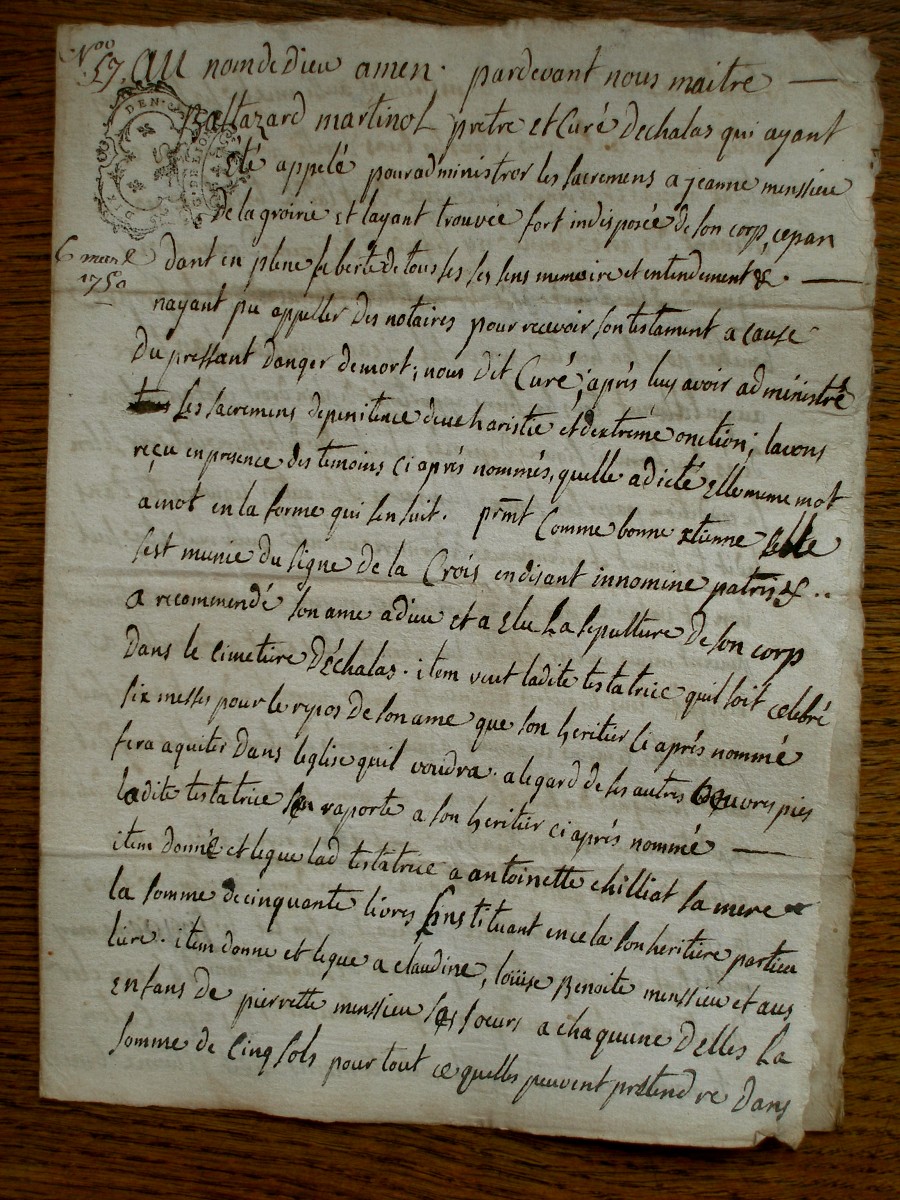 Noo
57. au nom de dieu amen. pardevant nous maitre —
Baltazard martinol pretre et Curé dechalas qui ayant
DEN.
G. DE LION
été appelé pour administrer les sacremens a jeanne menssieu
de la groirie et layant trouvée fort indisposée de son corp, cepan
6
1750
dant en pleine liberté de tous les ses sens memoire et entendement & —
nayant pu appeller des notaires pour recevoir son testament a cause
du pressant danger demort; nous dit Curé; après luy avoir administré
les sacremens depenitence deucharistie et dextreme onction; lavons
reçu en presence des temoins ci aprés nommés, quelle a dicté Elle meme mot
a mot en la forme qui sensuit. prmt Comme bonne xtienne Elle
sest munie du signe de la Crois en disant innomine patris &..
a recommendé son ame a dieu et a Elu sa sepulture de son corp
dans le cimetiere d'Échalas. item veut ladite testatrice quil soit celebré
six messes pour le repos de son ame que son heritier ci aprés nommé
fera aquiter dans leglise quil voudra. a legard de ses autres oeuvres pies
ladite testatrice sen raporte a son heritier ci aprés nommé —
item donne et legue lad testatrice a antoinette chilliat sa mere
la somme de cinquante livres Linstituant en cela son heritiere particu
liere. item donne et legue a claudine, loüise Benoite menssieu et aus
enfans de pierrette menssieu ses soeurs a chaquune delles la
somme de cinq sols pour tout ce quelles peuvent pretendre dans